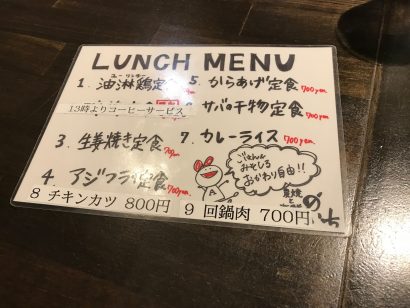 LUNCH MENU
1. 油淋鶏定
5. からあげ定食 700yen
13時よりコーヒーサービス
サバの干物定食 700yen
3. 生姜焼き定食
7. カレーライス 700yen
4. アジフライ定食 700yen
ごはん
みそしる
おかわり自由!!
8 チキンカツ 800円 9 回鍋肉 700円